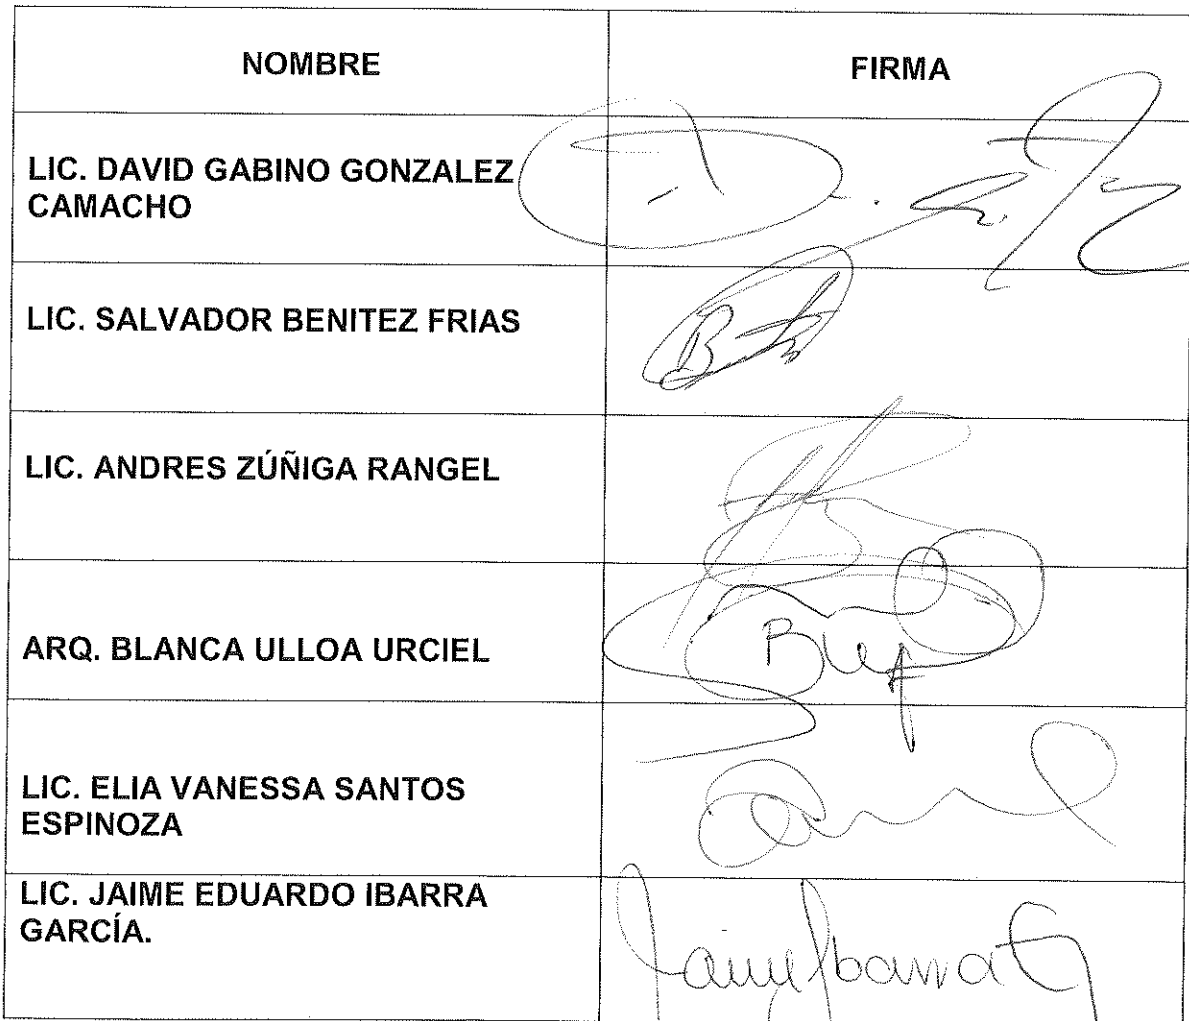 NOMBRE
FIRMA
LIC. DAVID GABINO GONZALEZ
CAMACHO
LIC. SALVADOR BENITEZ FRIAS
LIC. ANDRES ZÚÑIGA RANGEL
ARQ. BLANCA ULLOA URCIEL
LIC. ELIA VANESSA SANTOS
ESPINOZA
LIC. JAIME EDUARDO IBARRA
GARCÍA.
Jaime Ibarra G